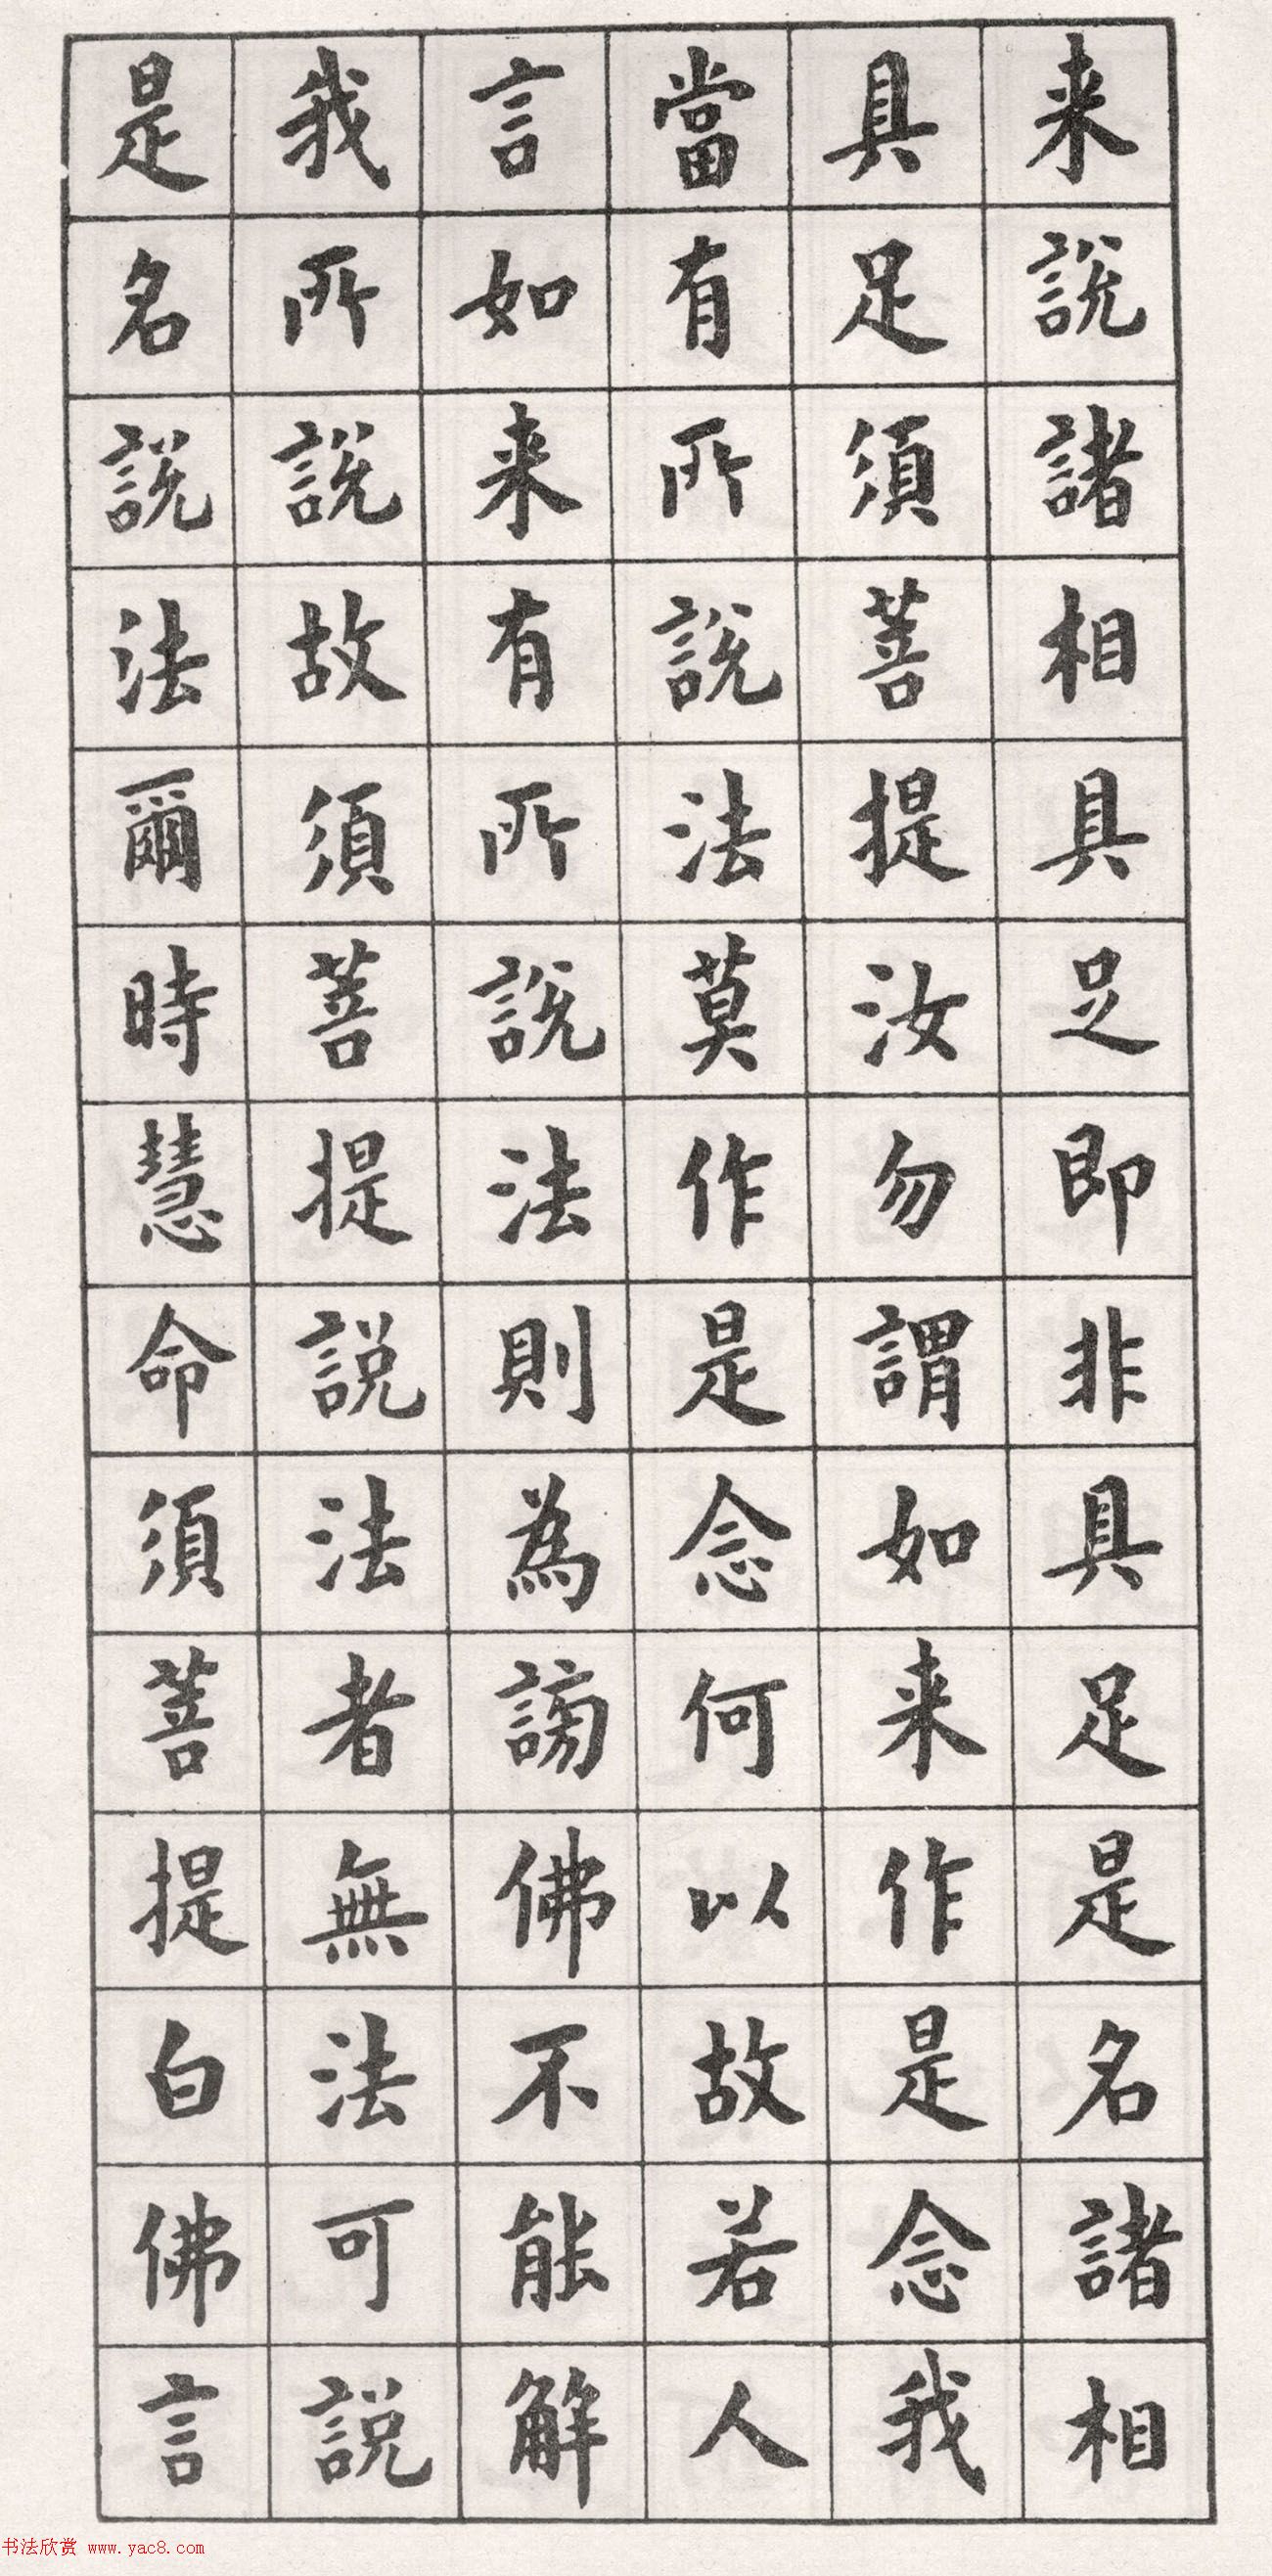 来說諸相具足即非具足是名諸相
具足須菩提汝勿謂如来作是念我
當有所說法莫作是念何以故若人
言如来有所說法則為謗佛不能解
我所說故須菩提説法者無法可説
是名說法爾時慧命須菩提白佛言
书法欣赏 www.yac8.com